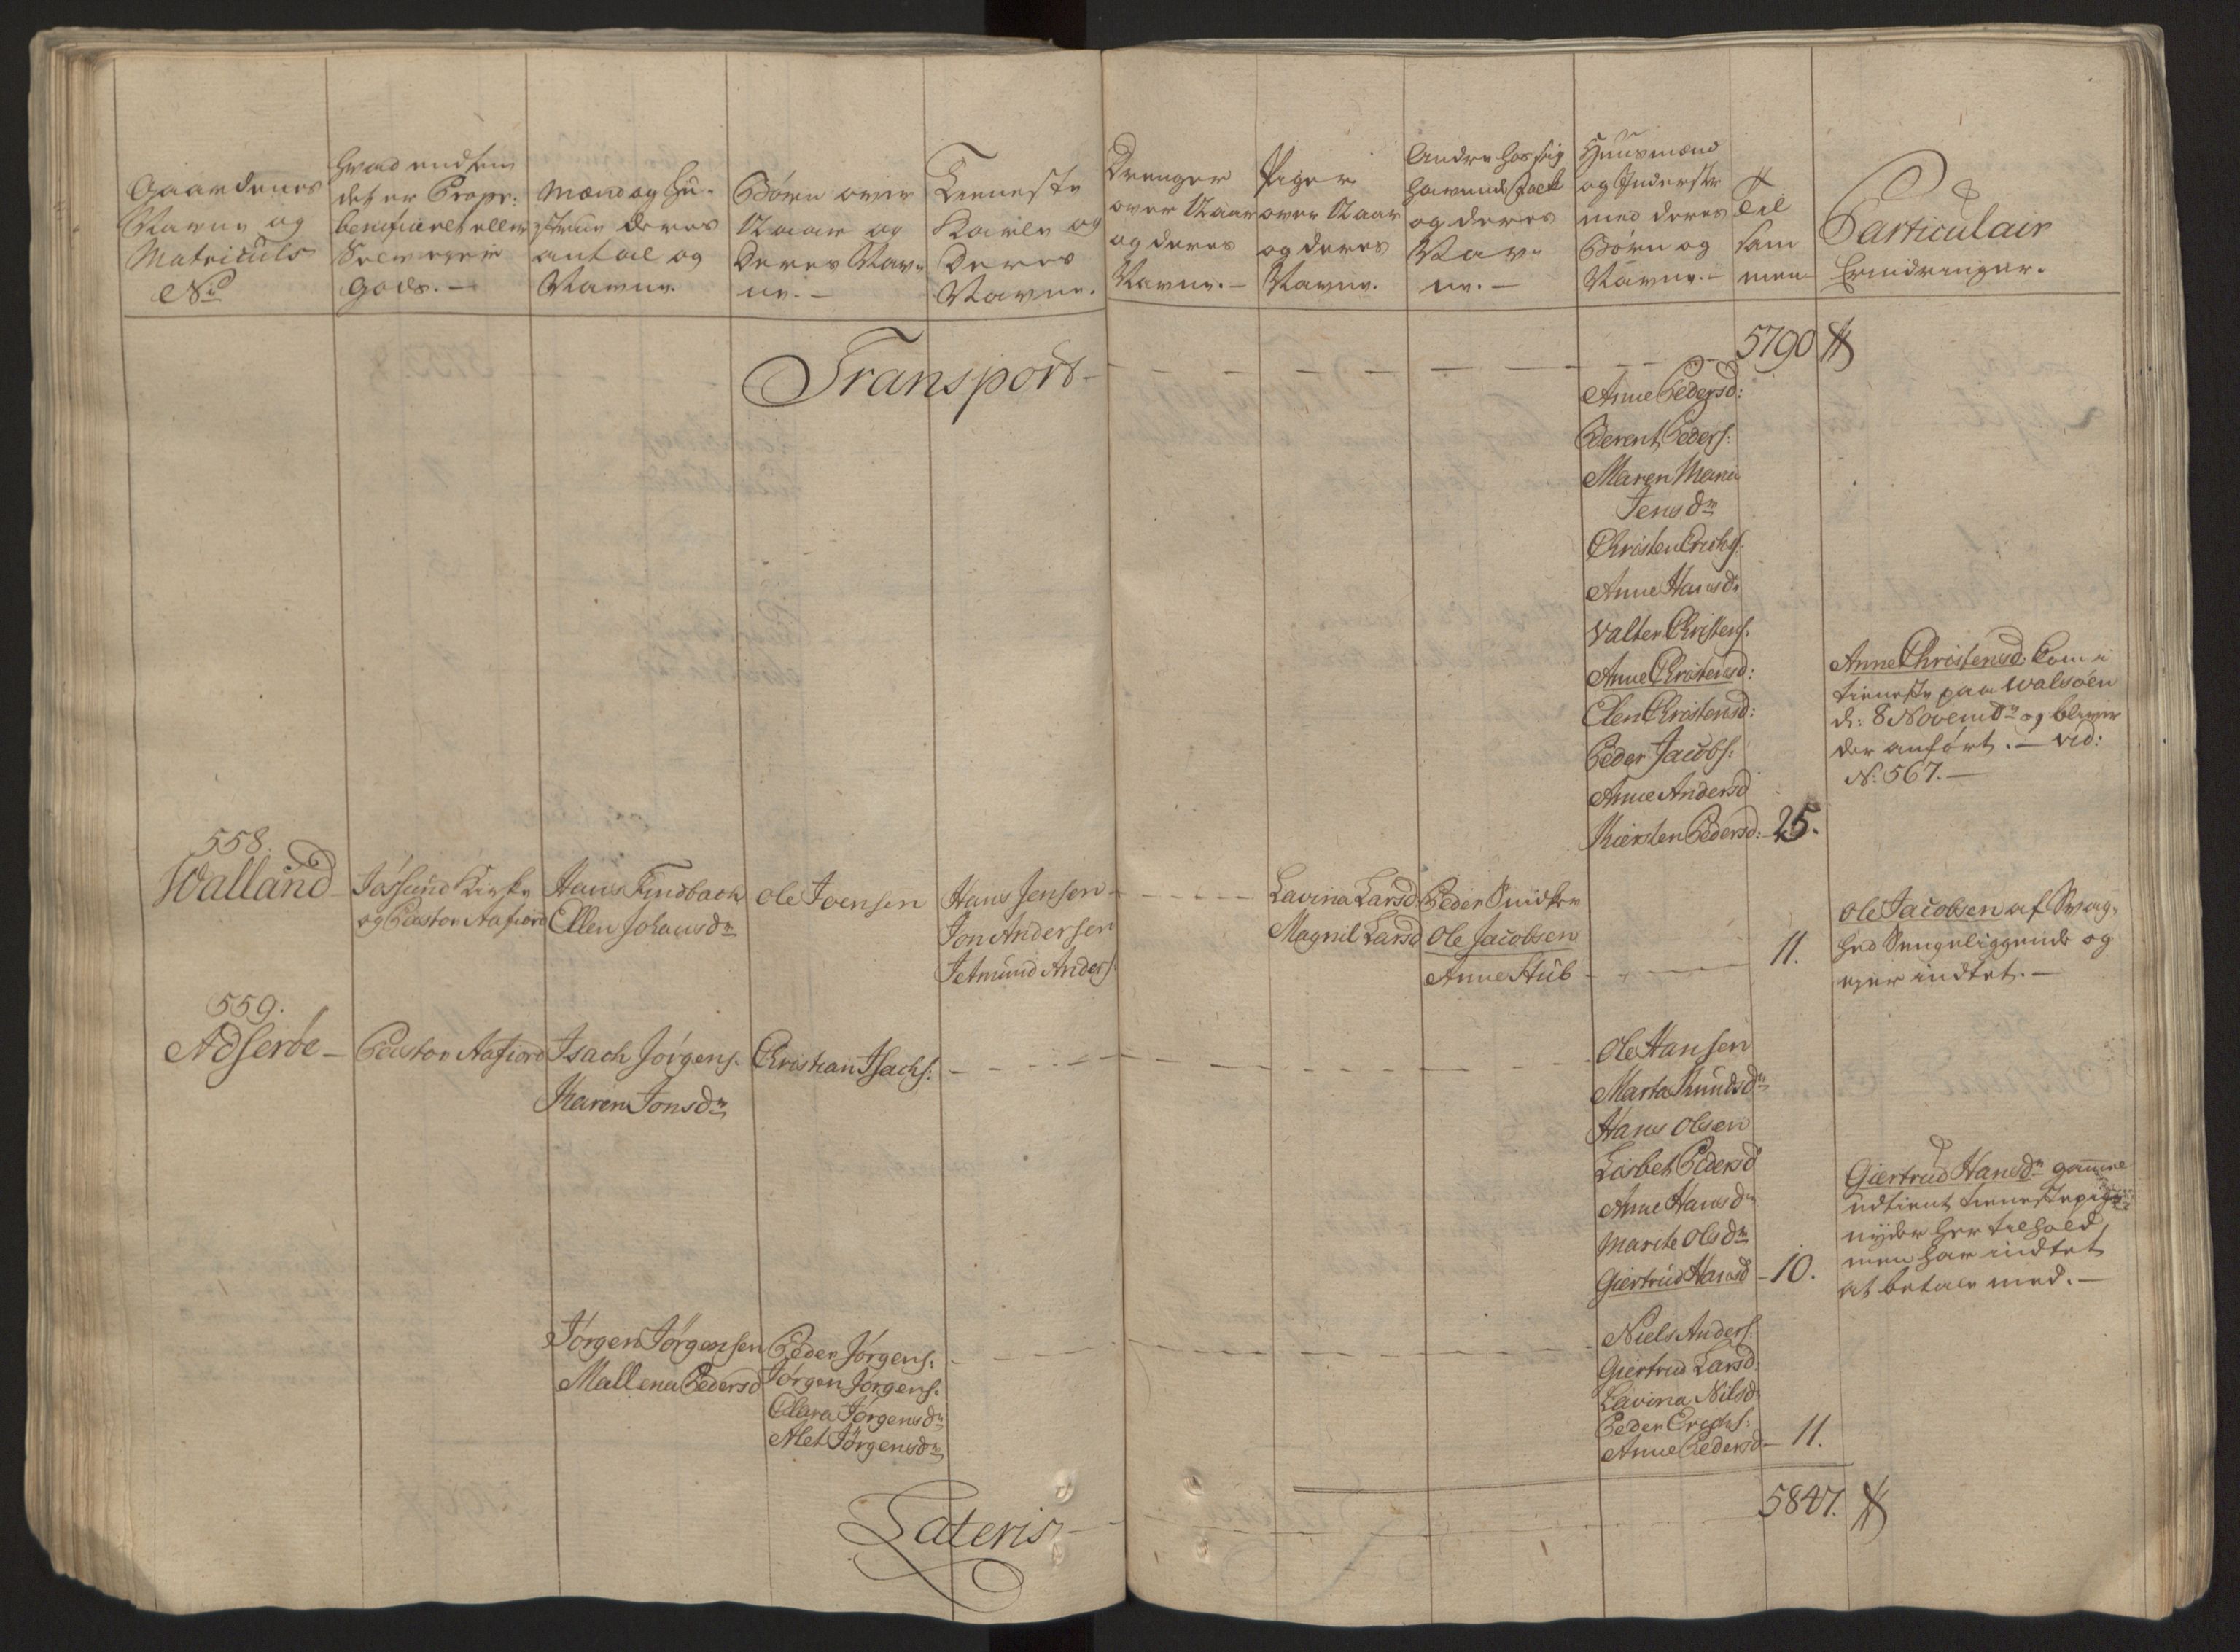 Gaardenes
Navne og
Matriculs
No
Hvad endten
det er Propr:
beneficeret eller
Selveyer
Gods. —
Mænd og Hu-
struer deres
antal og
Navne.
Børn over
12 Aar og
Deres Nav-
ne. —
Tieneste
Karle og
Deres
Navne.
Drenger
over 12 Aar
og deres
Navne. —
Piger
over 12 Aar
og deres
Navne.
Andre hos sig
havende Folk
og deres
Nav-
ne. —
Huusmænd
og Inderster
med deres
Børn og
Navne. —
Til
sam
men
Particulair
Erindringer.
Transport — 5790
Anne Pedersd:
Berent Peders:
Maren Maria
Jensdr
Christen Erichs:
Anne Hansdr
Valter Christens.
Anne Christensd:
Elen Christensd:
Peder Jacobs:
Anne Andersd
Kiersten Pedersd: 25.
Anne Christensd: kom i
tieneste paa Walsøen
d: 8 Novembr og bliver
der anført. — vid:
No. 567. —
558.
Walland
Jøssund Kirke
og Pastor Aafiord
Hans Findbach
Ellen Johansdr
Ole Joensen
Hans Jensen
Jon Andersen
Jetmund Anders:
Lavina Larsd
Magnil Larsd
Peder Snidker
Ole Jacobsen
Anne Stub
11.
Ole Jacobsen af Svag-
hed Sengeliggende og
eyer indtet. —
559.
Adserøe —
Pastor Aafiord
Isach Jørgens.
Karen Jonsdr
Christian Isachs:
Ole Hansen
Marta Knudsdr
Hans Olsen
Lisbet Pedersd
Anne Hansdr
Marite Olsdr
Giertrud Hansd — 10.
Giertrud Hansdr gamme
udtient tienestepige
nyder her tilhold,
men har indtet
at betale med. —
Jørgen Jørgensen
Mallena Pedersd
Peder Jørgens:
Jørgen Jørgens.
Clara Jørgensdr
Alet Jørgensdr
Niels Anders:
Giertrud Larsd.
Lavina Nilsd
Peder Erichs:
Anne Pedersd — 11.
Lateris — 5847.